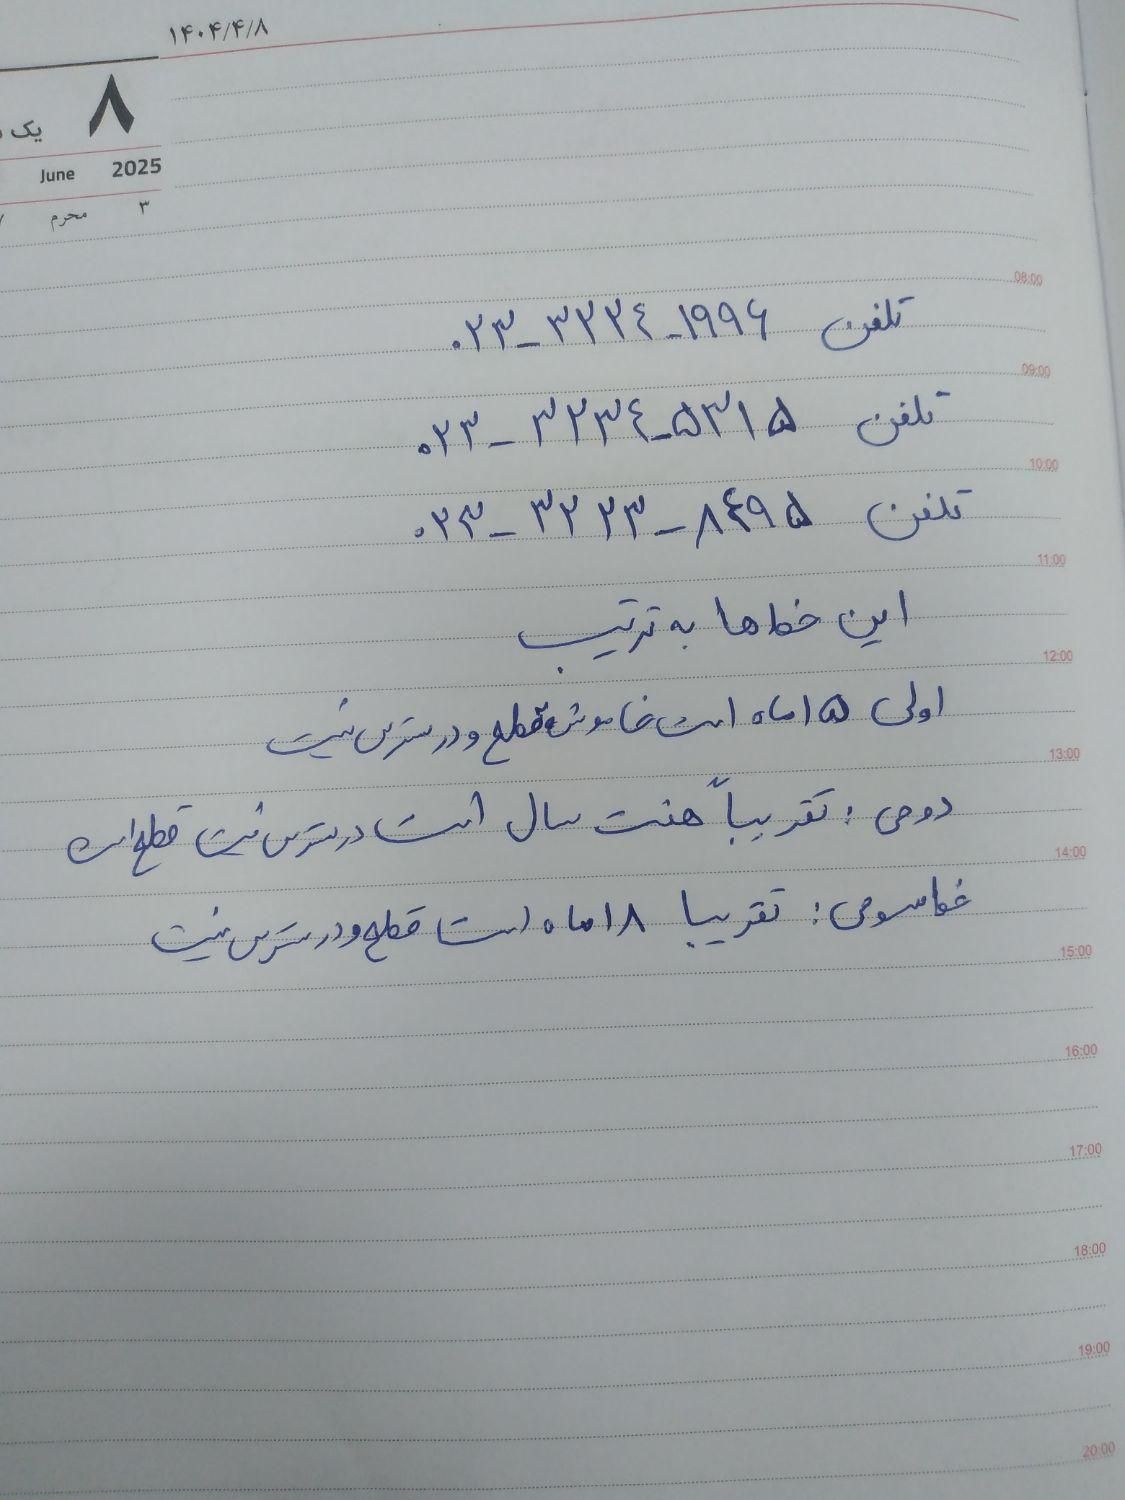 ۱۴۰۴/۴/۸
۸
یک
June 2025
۳ محرم
08:00
تلفن ۰۲۳-۳۲۲۴-۱۹۹۶
09:00
تلفن ۰۲۳-۳۲۳۴-۵۳۱۵
10:00
تلفن ۰۲۳-۳۲۲۳-۸۴۹۵
11:00
این خط ها به ترتیب
12:00
اولی ۱۵ ماه است خاموش قطع و در دسترس نیست
13:00
دومی : تقریباً هفت سال است در دسترس نیست قطع است
14:00
خط سومی : تقریبا ۱۸ ماه است قطع و در دسترس نیست
15:00
16:00
17:00
18:00
19:00
20:00